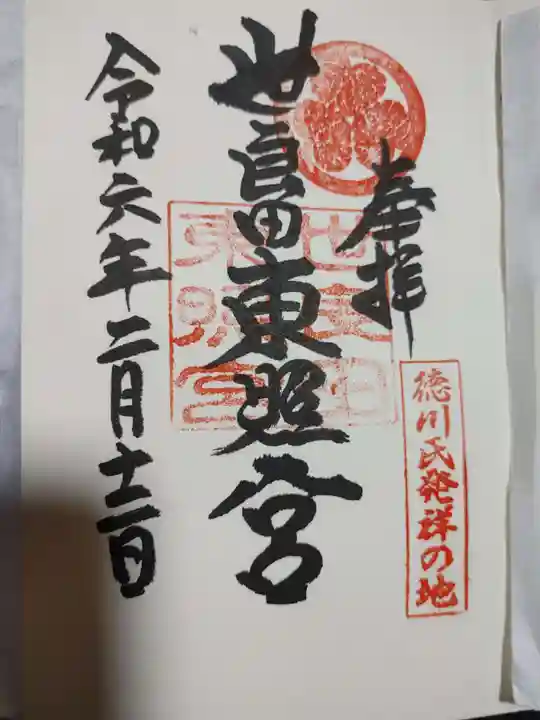 奉拝
徳川氏発祥の地
世良田東照宮
世良田東照宮
令和六年二月十二日